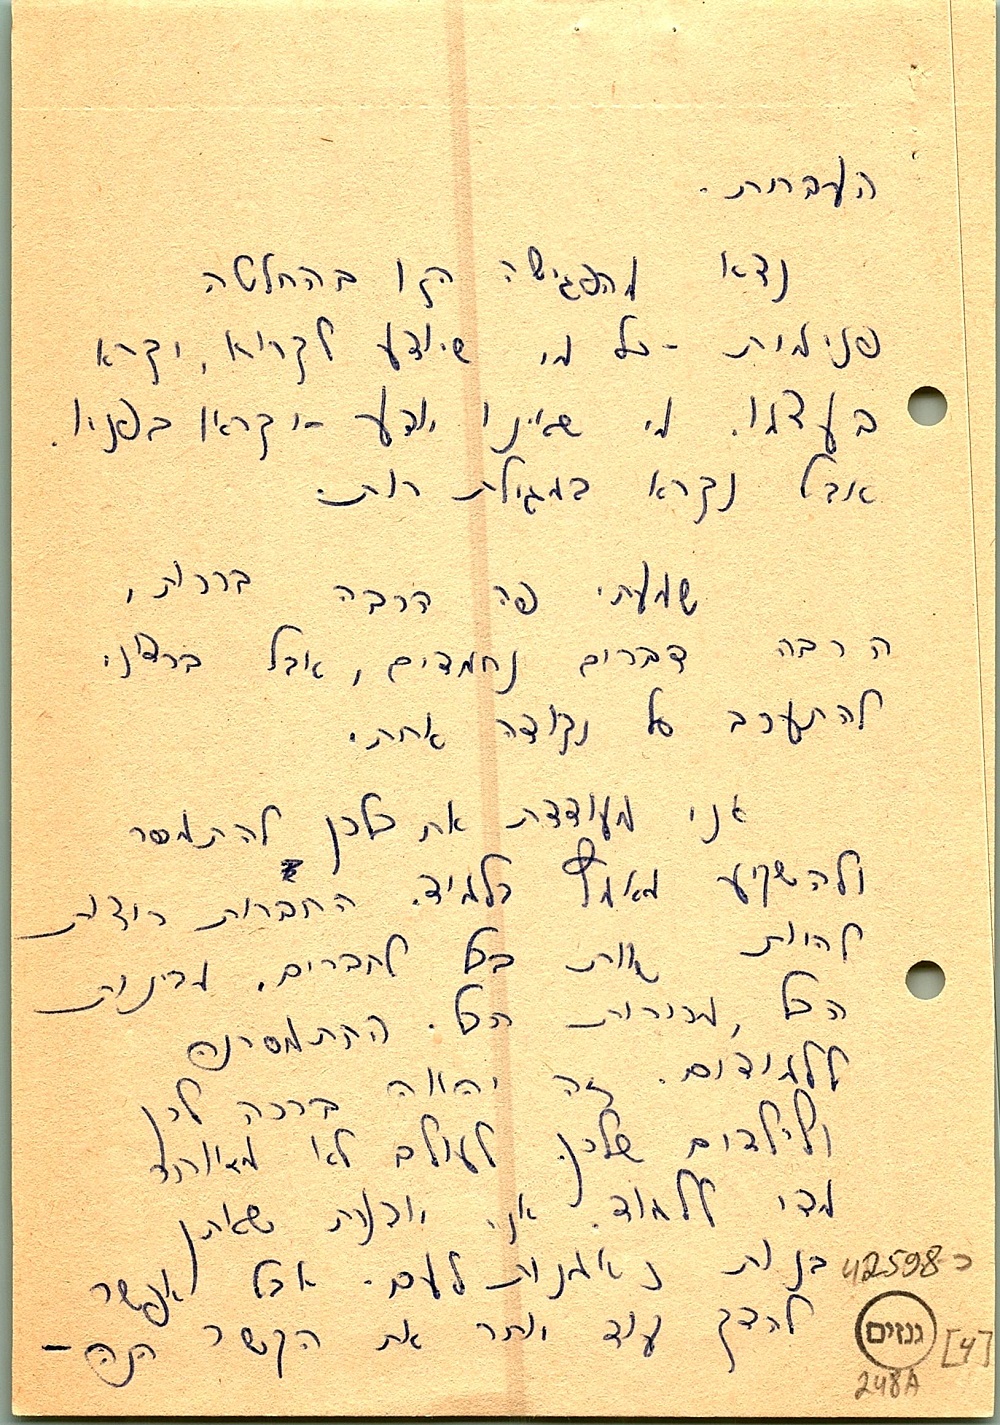 העברות.
נצא מהפגישה הזו בהחלטה
פנימית - כל מי שיודע לקרוא, יקרא
בעצמו. מי שאינו יודע - יקראו בפניו.
אבל נקרא במגילת רות.
שמעתי פה הרבה ברכות,
הרבה דברים נחמדים, אבל ברצוני
להתערב על נקודה אחת.
אני מעודדת את כולכן להתמסר
ולהשקיע מאמץ בלמוד. החברות רוצות
להיות שוות בכל לחברים. מבינות
הכל, מכירות הכל. התמסרנה
ללמודים. זה יהיה ברכה לכן
ולילדים שלכן. לעולם לא מאוחר
מדי ללמוד. אני יודעת שאתן
בנות נאמנות לעם. אבל אפשר
להדק עוד יותר את הקשר הזה -
כ-42598
גנזים
[4]
248A